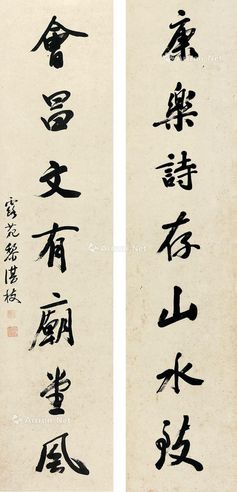 康樂詩存山水致
會昌文有廟堂風
霞苑黎湛枝